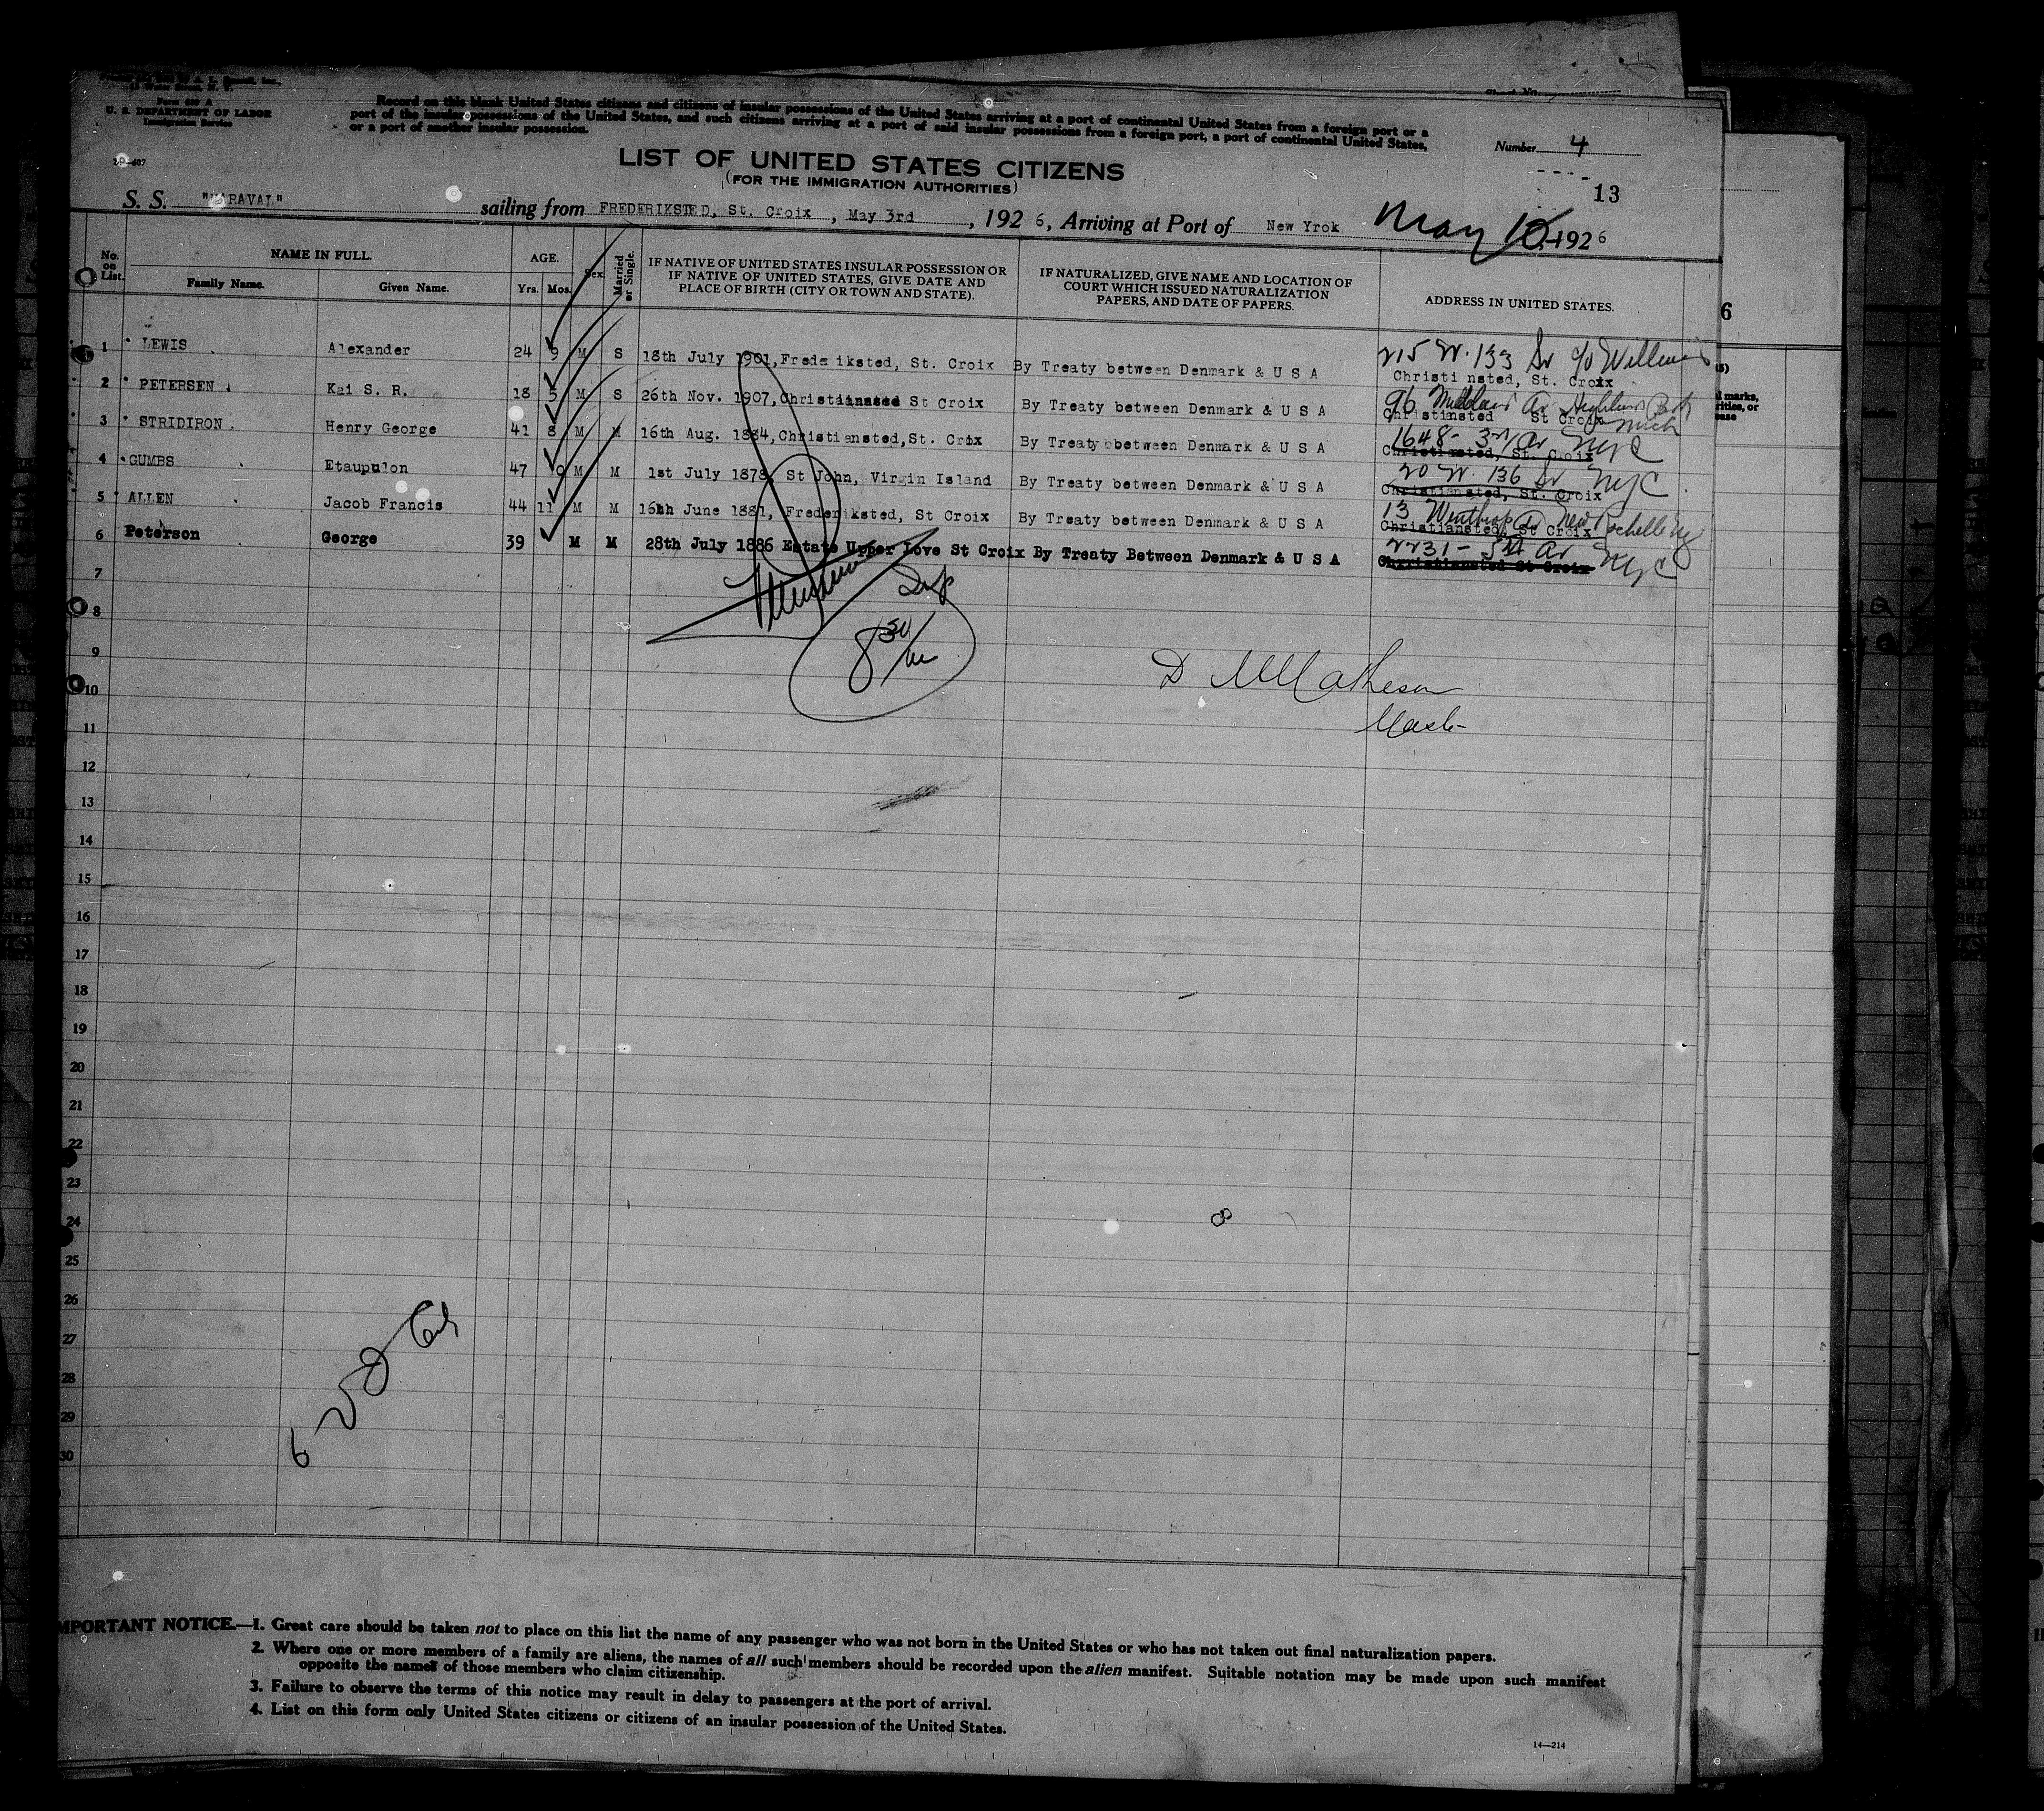 Form 630 A
U. S. DEPARTMENT OF LABOR
Immigration Service
Record on this blank United States citizens and citizens of insular possessions of the United States arriving at a port of continental United States from a foreign port or a
port of the insular possessions of the United States, and such citizens arriving at a port of said insular possessions from a foreign port, a port of continental United States,
or a port of another insular possession.
Number 4
LIST OF UNITED STATES CITIZENS
(FOR THE IMMIGRATION AUTHORITIES)
13
S. S. "MARAVAL" sailing from FREDERIKSTED, St. Croix, May 3rd, 1926, Arriving at Port of New Yrok May 10, 1926
No. on List.
NAME IN FULL.
Family Name.
Given Name.
AGE.
Yrs. Mos.
Sex
Married or Single.
IF NATIVE OF UNITED STATES INSULAR POSSESSION OR
IF NATIVE OF UNITED STATES, GIVE DATE AND
PLACE OF BIRTH (CITY OR TOWN AND STATE).
IF NATURALIZED, GIVE NAME AND LOCATION OF
COURT WHICH ISSUED NATURALIZATION
PAPERS, AND DATE OF PAPERS.
ADDRESS IN UNITED STATES.
6
1 LEWIS Alexander 24 9 M S 18th July 1901, Frederiksted, St. Croix By Treaty between Denmark & U S A 215 W. 133 St c/o
Christi nsted, St. Croix
2 PETERSEN Kai S. R. 18 5 M S 26th Nov. 1907, Christiansted St Croix By Treaty between Denmark & U S A 96 Midland Av Highland Park Mich
Christiansted St Croix
3 STRIDIRON Henry George 41 8 M M 16th Aug. 1884, Christiansted, St. Crix By Treaty between Denmark & U S A 1648 - 3rd Av NYC
Christiansted, St. Croix
4 GUMBS Etaupulon 47 9 M M 1st July 1878, St John, Virgin Island By Treaty between Denmark & U S A 20 W. 136 St NYC
Christiansted, St. Croix
5 ALLEN Jacob Francis 44 11 M M 16th June 1881, Frederiksted, St Croix By Treaty between Denmark & U S A 13 Winthrop Av New Rochelle NY
Christiansted, St Croix
6 Peterson George 39 M M 28th July 1886 Estate Upper Love St Croix By Treaty Between Denmark & U S A 2231 - 5th Av NYC
Christiansted St Croix
7
8
9
10
11
12
13
14
15
16
17
18
19
20
21
22
23
24
25
26
27
28
29
30
D Matheson
IMPORTANT NOTICE.—1. Great care should be taken not to place on this list the name of any passenger who was not born in the United States or who has not taken out final naturalization papers.
2. Where one or more members of a family are aliens, the names of all such members should be recorded upon the alien manifest. Suitable notation may be made upon such manifest
opposite the names of those members who claim citizenship.
3. Failure to observe the terms of this notice may result in delay to passengers at the port of arrival.
4. List on this form only United States citizens or citizens of an insular possession of the United States.
14—214